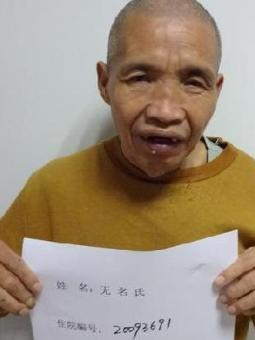 姓 名：无 名 氏
住院编号：20093691